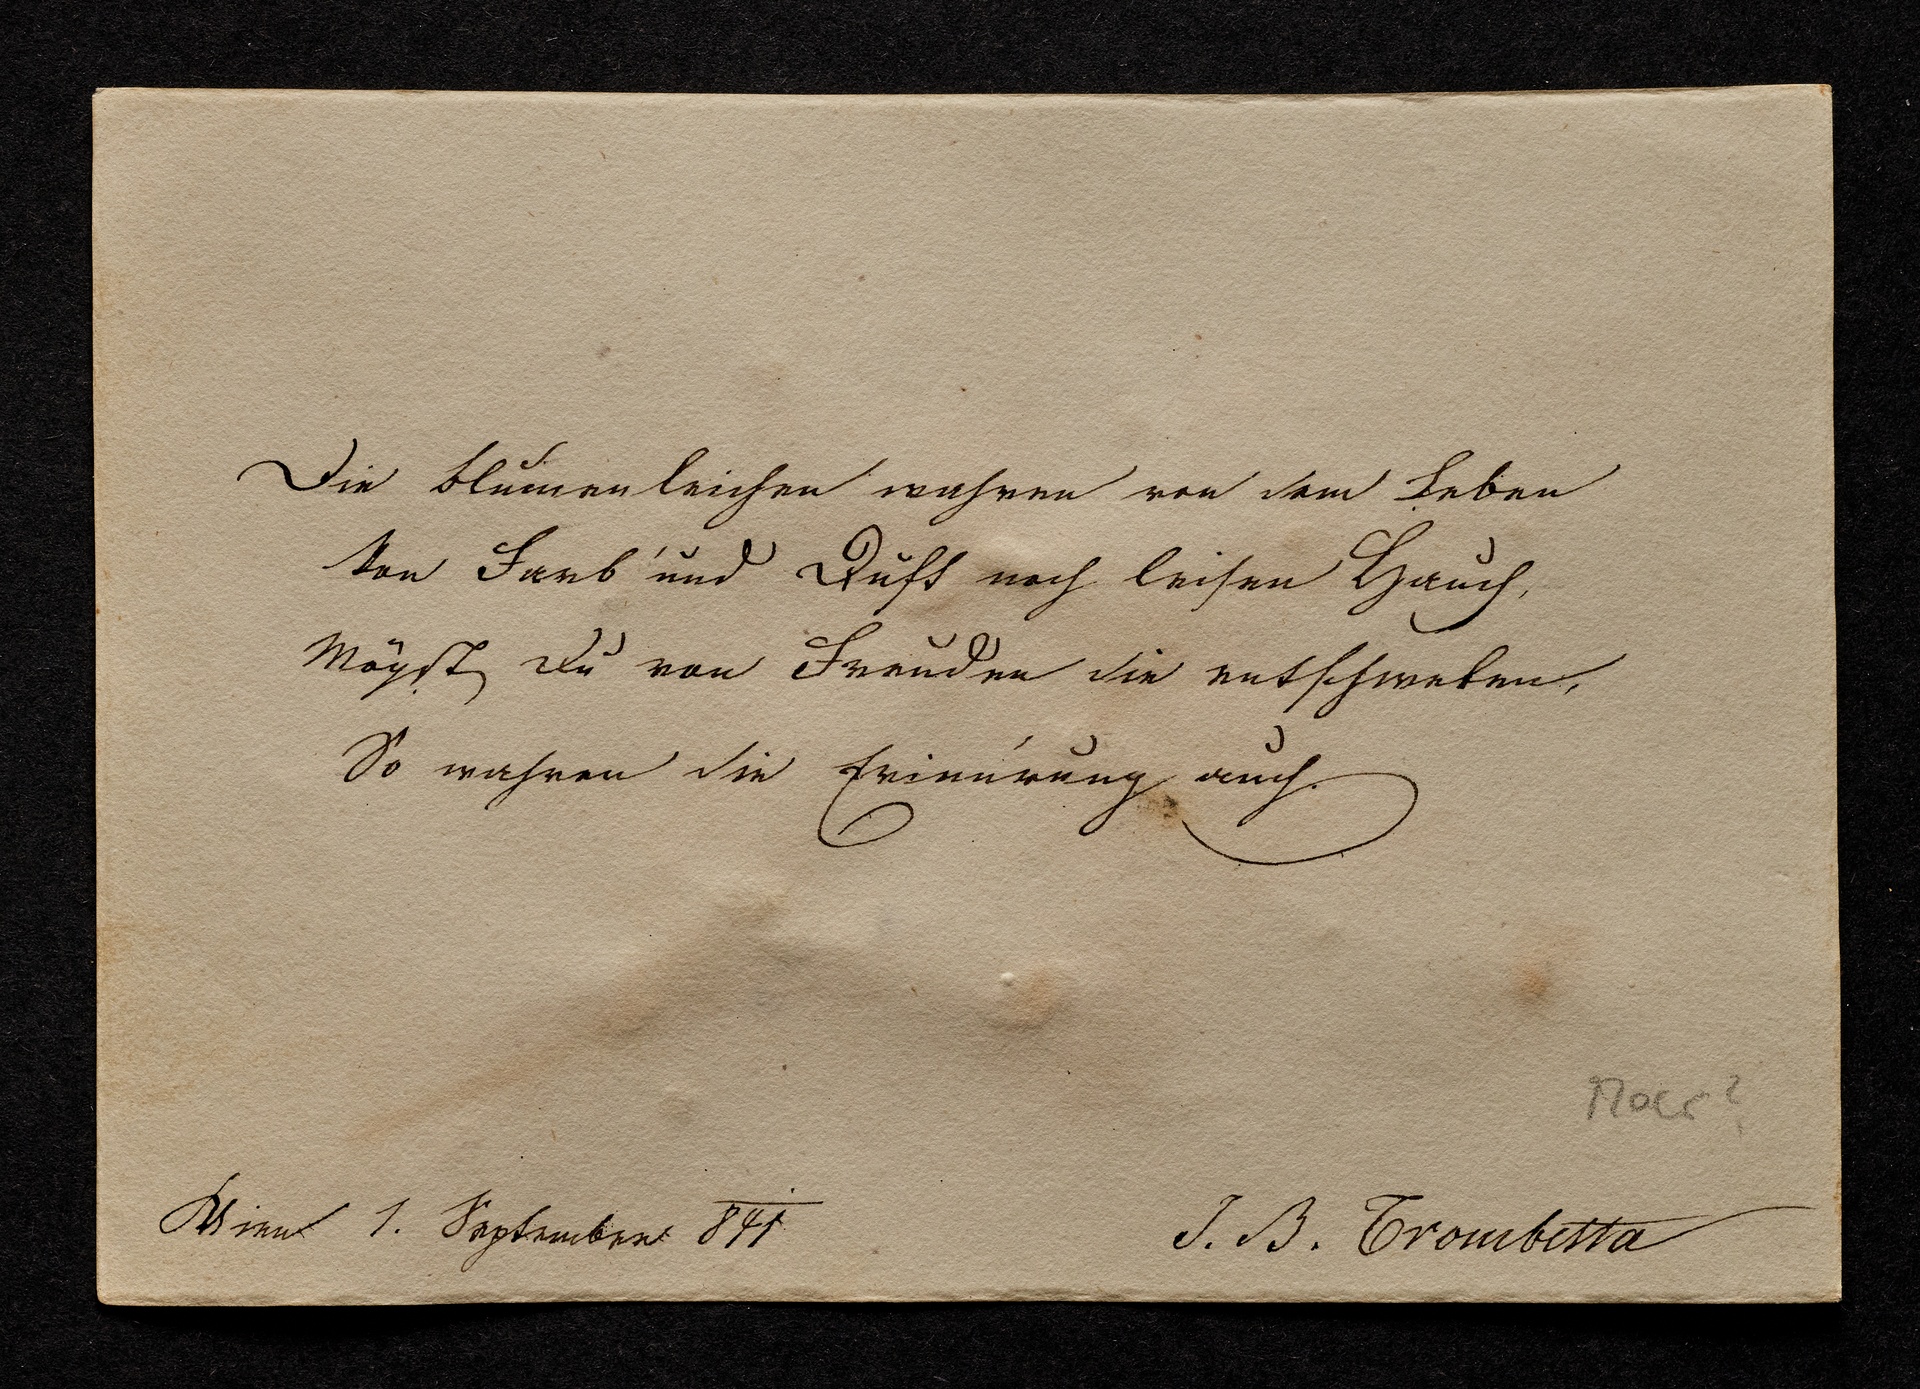 Die Blumenleichen wahren von dem Leben
Von Farb' und Duft noch leisen Hauch,
Mögst Du von Freuden die entschweben,
So wahren die Erinn'rung auch.
Wien 1. September 841
J. B. Trombetta